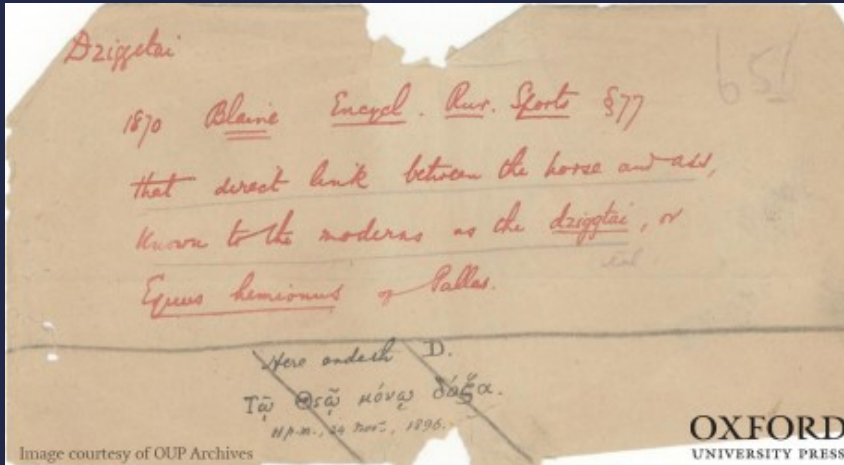 Dziggetai
651
1870 Blaine Encycl. Rur. Sports §77
that direct link between the horse and ass,
known to the moderns as the dziggtai, or
Equus hemionus of Pallas.
Here endeth D.
Τῷ Θεῷ μόνῳ δόξα.
11 p.m., 24 Nov., 1896.
Image courtesy of OUP Archives
OXFORD
UNIVERSITY PRESS